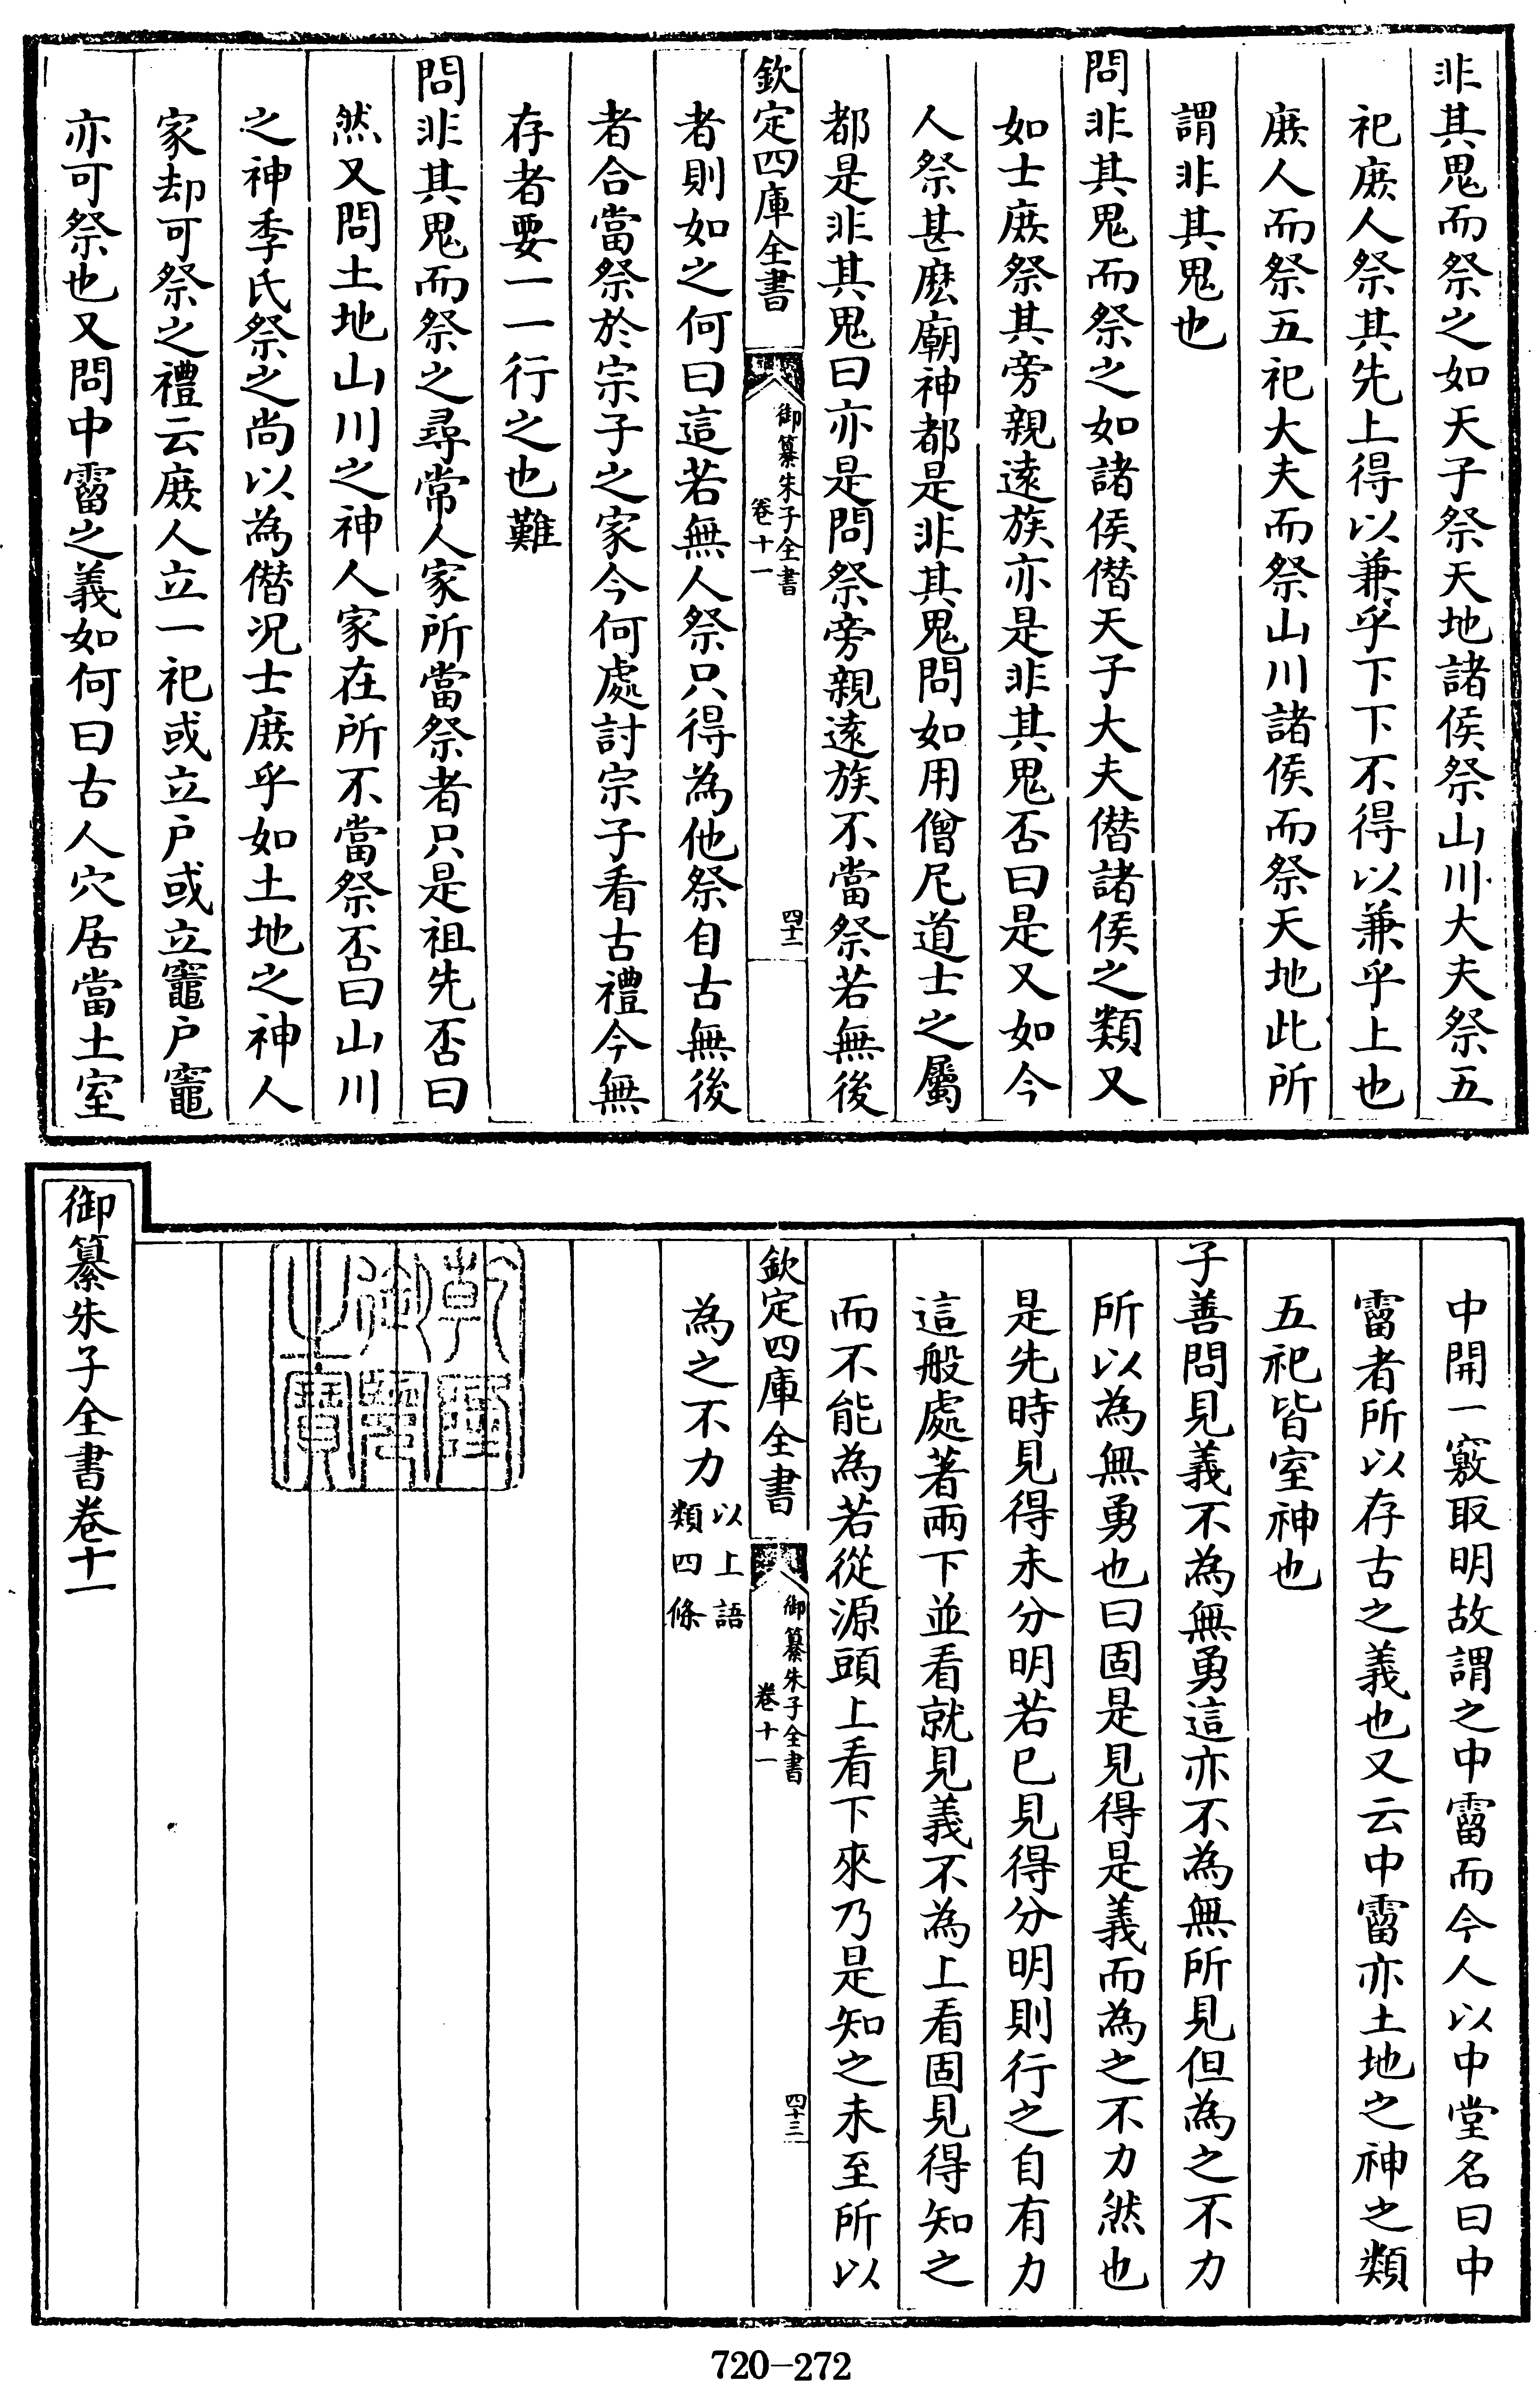 非其鬼而祭之如天子祭天地諸侯祭山川大夫祭五
祀庶人祭其先上得以兼乎下下不得以兼乎上也
庶人而祭五祀大夫而祭山川諸侯而祭天地此所
謂非其鬼也
問非其鬼而祭之如諸侯僭天子大夫僭諸侯之類又
如士庶祭其旁親遠族亦是非其鬼否曰是又如今
人祭甚麽廟神都是非其鬼問如用僧尼道士之屬
都是非其鬼曰亦是問祭旁親遠族不當祭若無後
欽定四庫全書
御纂朱子全書
卷十一
四十二
者則如之何曰這若無人祭只得為他祭自古無後
者合當祭於宗子之家今何處討宗子看古禮今無
存者要一一行之也難
問非其鬼而祭之尋常人家所當祭者只是祖先否曰
然又問土地山川之神人家在所不當祭否曰山川
之神季氏祭之尚以為僭況士庶乎如土地之神人
家却可祭之禮云庶人立一祀或立户或立竈户竈
亦可祭也又問中霤之義如何曰古人穴居當土室
中開一竅取明故謂之中霤而今人以中堂名曰中
霤者所以存古之義也又云中霤亦土地之神之類
五祀皆室神也
子善問見義不為無勇這亦不為無所見但為之不力
所以為無勇也曰固是見得是義而為之不力然也
是先時見得未分明若已見得分明則行之自有力
這般處著兩下並看就見義不為上看固見得知之
而不能為若從源頭上看下來乃是知之未至所以
欽定四庫全書
御纂朱子全書
卷十一
四十三
為之不力以上語
類四條
乾隆
御覽
之寶
御纂朱子全書卷十一
720-272